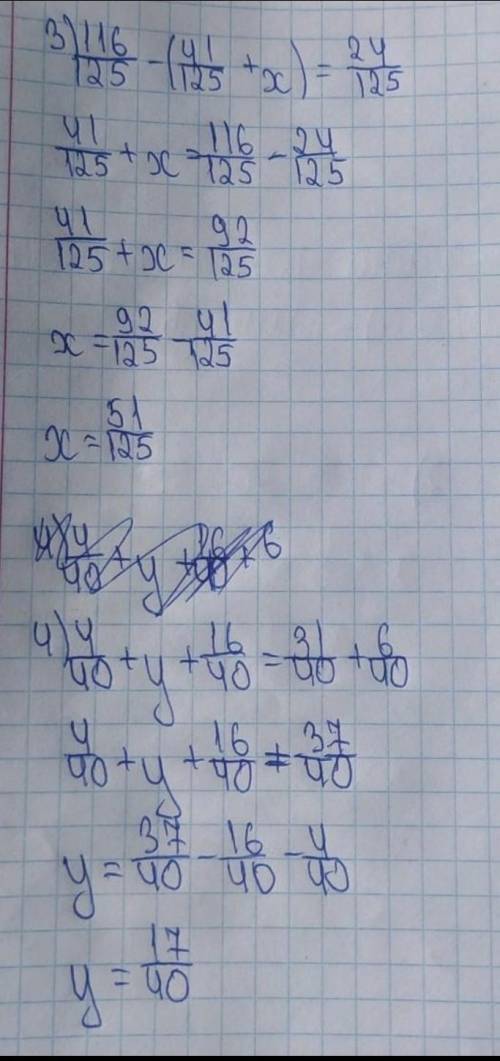 3) 116/125 - (41/125 + x) = 24/125
41/125 + x = 116/125 - 24/125
41/125 + x = 92/125
x = 92/125 - 41/125
x = 51/125
4) 4/40 + y + 16/40 + 6
4) 4/40 + y + 16/40 = 31/40 + 6/40
4/40 + y + 16/40 = 37/40
y = 37/40 - 16/40 - 4/40
y = 17/40